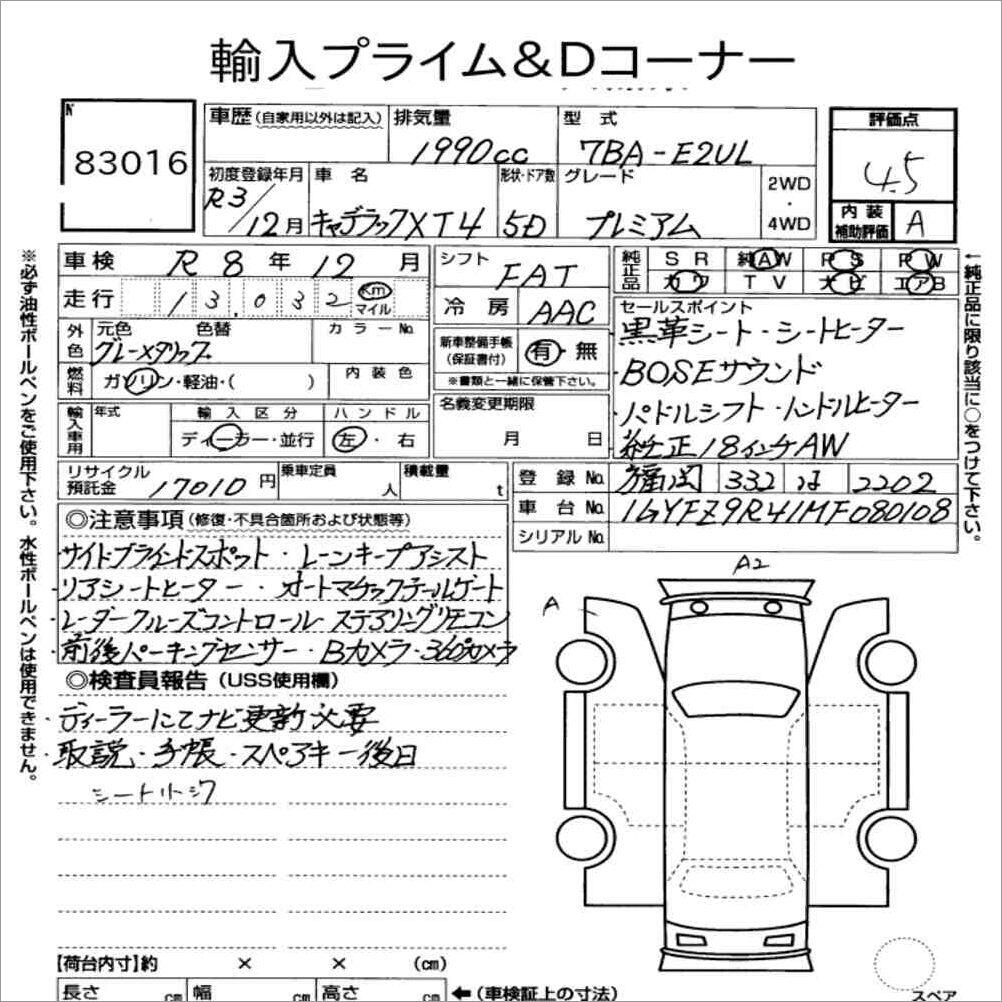 輸入プライム&Dコーナー
№
83016
車歴(自家用以外は記入)
排気量
1990cc
型式
7BA-E2UL
評価点
4.5
初度登録年月
R3/12月
車名
キャデラックXT4
形状・ドア数
5D
グレード
プレミアム
2WD
・
4WD
内装
補助評価
A
車検 R8年12月
走行 13,032 Km
マイル
シフト FAT
冷房 AAC
純正品
SR 純AW PS PW
カワ TV ナビ エアB
セールスポイント
黒革シート・シートヒーター
BOSEサウンド
パドルシフト・ハンドルヒーター
純正18インチAW
外色
元色 色替
グレーメタリック
カラーNo.
燃料
ガソリン・軽油・( )
内装色
新車整備手帳
(保証書付)
有・無
※書類と一緒に保管下さい。
輸入車用
年式
輸入区分
ディーラー・並行
ハンドル
左・右
名義変更期限
月 日
リサイクル
預託金
17010円
乗車定員
人
積載量
t
登録No. 福岡 332 は 2202
車台No. 1GYFZ9R41MF080108
シリアルNo.
◎注意事項(修復・不具合箇所および状態等)
サイドブラインドスポット・レーンキープアシスト
リアシートヒーター・オートマチックテールゲート
レーダークルーズコントロール ステアリングリモコン
前後パーキングセンサー・Bカメラ・360°カメラ
◎検査員報告(USS使用欄)
ディーラーにてナビ更新必要
取説・手帳・スペアキー後日
シート
A2
A
【荷台内寸】約 × × (cm)
長さ cm 幅 cm 高さ cm ←(車検証上の寸法)
スペア
※必ず油性ボールペンをご使用下さい。水性ボールペンは使用できません。
←純正品に限り該当に○をつけて下さい。